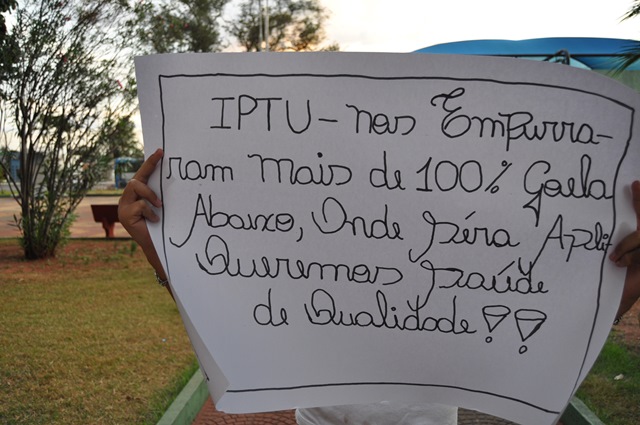 IPTU - nos Empurra-
ram mais de 100% Goela
Abaixo, Onde Será Apli
Queremos Saúde
de Qualidade!?